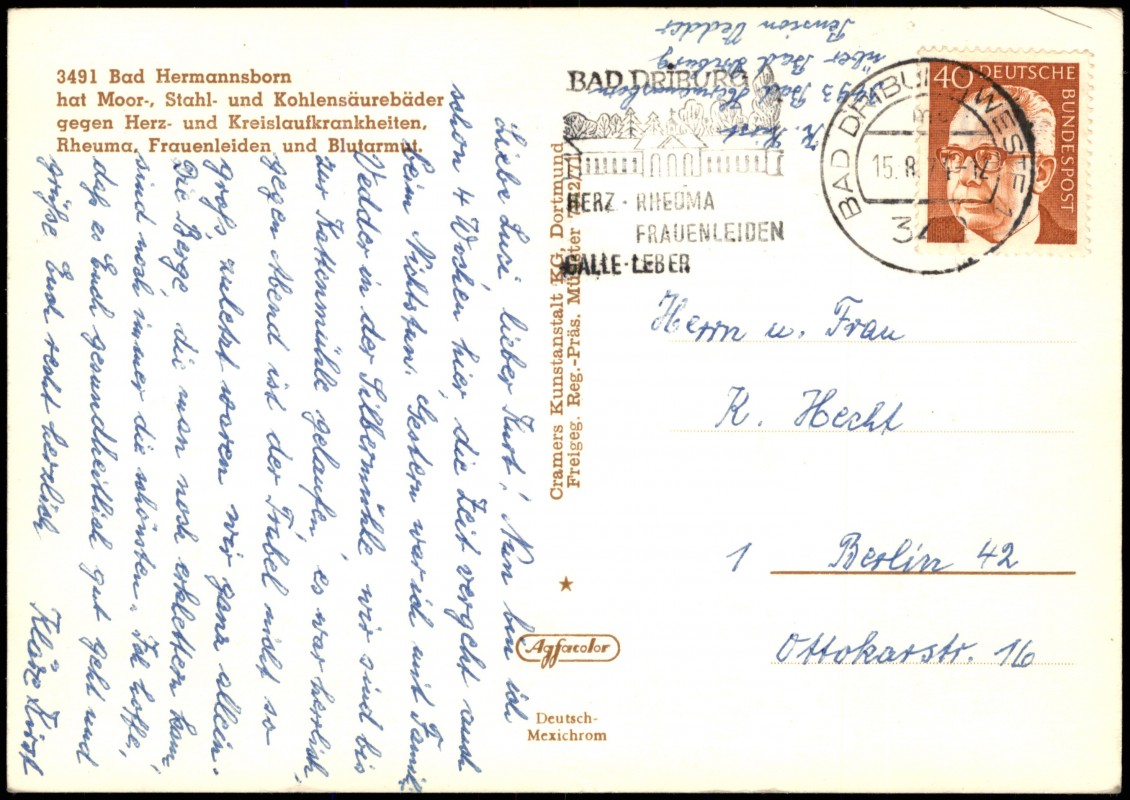 3491 Bad Hermannsborn
hat Moor-, Stahl- und Kohlensäurebäder
gegen Herz- und Kreislaufkrankheiten,
Rheuma, Frauenleiden und Blutarmut.
Liebe Luci lieber Kurt! Nun bin ich
schon 4 Wochen hier die Zeit vergeht auch
beim Nichtstun. Gestern war ich mit Famil.
Vedder in der Silbermühle wir sind bis
zur Kattenmühle gelaufen, es war herrlich,
gegen Abend ist der Trubel nicht so
groß zuletzt waren wir ganz allein.
Die Berge die man noch erklettern kann
sind noch immer die schönsten. Ich hoffe,
daß es Euch gesundheitlich gut geht und
grüße Euch recht herzlich
Kläre Horst
Cramers Kunstanstalt KG, Dortmund
Freigeg. Reg.-Präs. Münster
Agfacolor
Deutsch-
Mexichrom
K. Horst
3493 Bad Hermannsborn
über Bad Driburg
Pension Vedder
BAD DRIBURG
HERZ · RHEUMA
FRAUENLEIDEN
GALLE · LEBER
BAD DRIBURG WESTF 1
15. 8.
40 DEUTSCHE
BUNDESPOST
Herrn u. Frau
K. Hecht
1 Berlin 42
Ottokarstr. 16